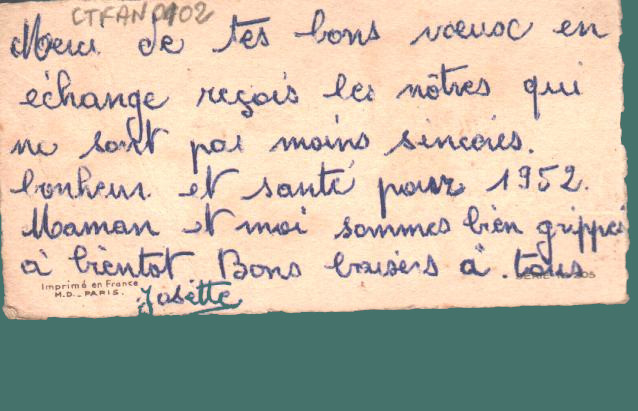 CTFAN0102
Merci de tes bons voeux en
échange reçois les nôtres qui
ne sont pas moins sincères.
bonheur et santé pour 1952.
Maman et moi sommes bien grippés
à bientot Bons baisers à tous
Imprimé en France
M.D._PARIS.
Josette